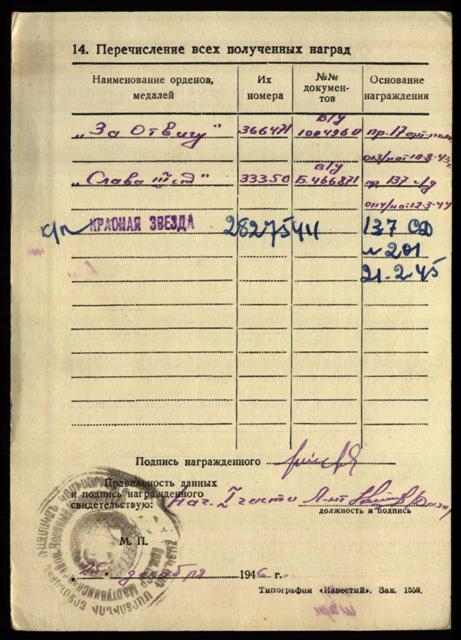 14. Перечисление всех полученных наград
Наименование орденов, медалей
Их номера
№№ документов
Основание награждения
„За Отвагу"
366471
в/у 1004960
пр. 17
„Слава III ст"
33350
в/у Б.466871
пр. 137 с/д
КРАСНАЯ ЗВЕЗДА
2827544
137 СД
№ 201
21-2-45
Подпись награжденного
Правильность данных
и подпись награжденного
свидетельствую: Нач. I части
должность и подпись
М. П.
25 декабря 1946 г.
Типография «Известий». Зак. 1559.